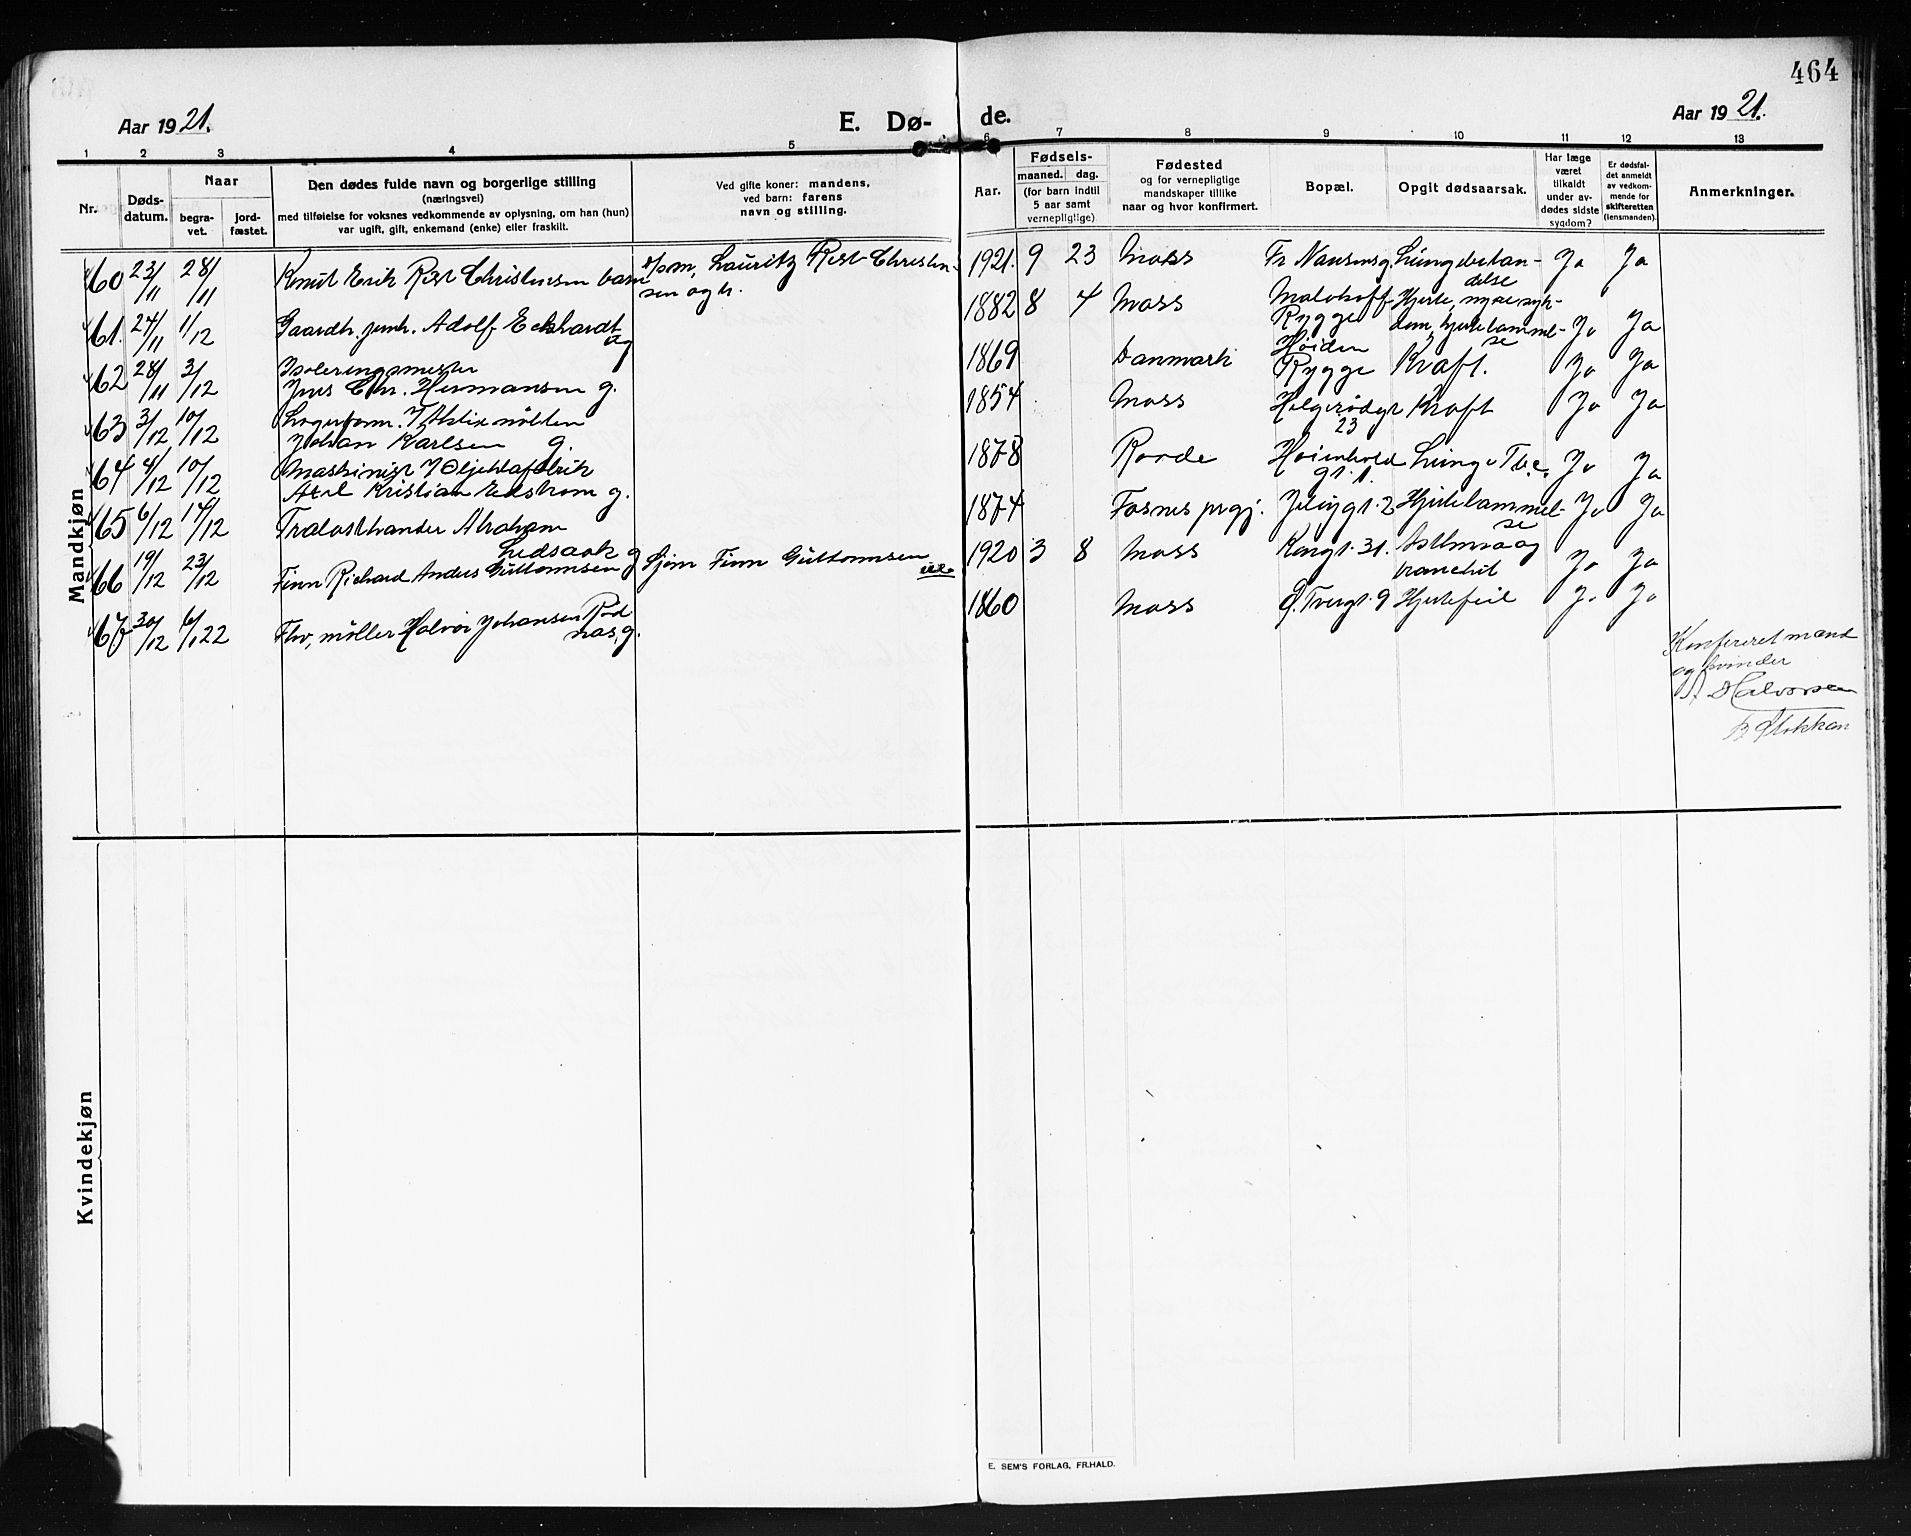 464
Aar 1921.
E. Dø-
de.
Aar 1921.
1 2 3 4 5 6 7 8 9 10 11 12 13
Nr.
Døds-
datum.
Naar
begra-
vet.
jord-
fæstet.
Den dødes fulde navn og borgerlige stilling
(næringsvei)
med tilføielse for voksnes vedkommende av oplysning, om han (hun)
var ugift, gift, enkemand (enke) eller fraskilt.
Ved gifte koner: mandens,
ved barn: farens
navn og stilling.
Aar.
Fødsels-
maaned. dag.
(for barn indtil
5 aar samt
vernepligtige)
Fødested
og for vernepligtige
mandskaper tillike
naar og hvor konfirmert.
Bopæl.
Opgit dødsaarsak.
Har læge
været
tilkaldt
under av-
dødes sidste
sygdom?
Er dødsfal-
det anmeldt
av vedkom-
mende for
skifteretten
(lensmanden).
Anmerkninger.
Mandkjøn
60 23/11 28/11 Knut Erik Rist Christensen barn
Lauritz Rist Christen-
sen og h.
1921. 9 23 Moss Fr Nansensg. Lungebetan-
delse Ja Ja
61. 24/11 1/12 Gaardbr. jernh. Adolf Eckhardt
ug
1882 8 4 Moss Malakoff
Rygge Hjerte, nyresyk-
dom, hjertelammel-
se Ja Ja
62 28/11 3/12 Isoleringsmester
Jens Chr. Hermansen g.
1869 Danmark Høiden
Rygge Kræft. Ja Ja
63 3/12 10/12
Johan Karlsen g.
1854 Moss Helgerødgt
23 Kræft Ja Ja
64 4/12 10/12 Maskinist
Axel Kristian Edstrom g.
1878 Raade Høienhald
gt. 1. Lunge Tbc. Ja Ja
65 6/12 14/12 Trælasthandler Abraham
Ledsaak g
1874 Fosnes prgj. Jeløygt. 2 Hjertelammel-
se Ja Ja
66 19/12 23/12 Finn Richard Anders Guttormsen
Sjøm Finn Guttormsen
1920 3 8 Moss Kongt. 31. Asthma og
bronchit Ja Ja
67 30/12 6/1 22 Fhv. møller Halvor Johansen Rød
næs, g.
1860 Moss Ø. Tvergt. 9 Hjertefeil Ja Ja
Konfereret mand
og kvinder
A Halvorsen
B Stokkan
Kvindekjøn
E. SEM'S FORLAG, FR.HALD.